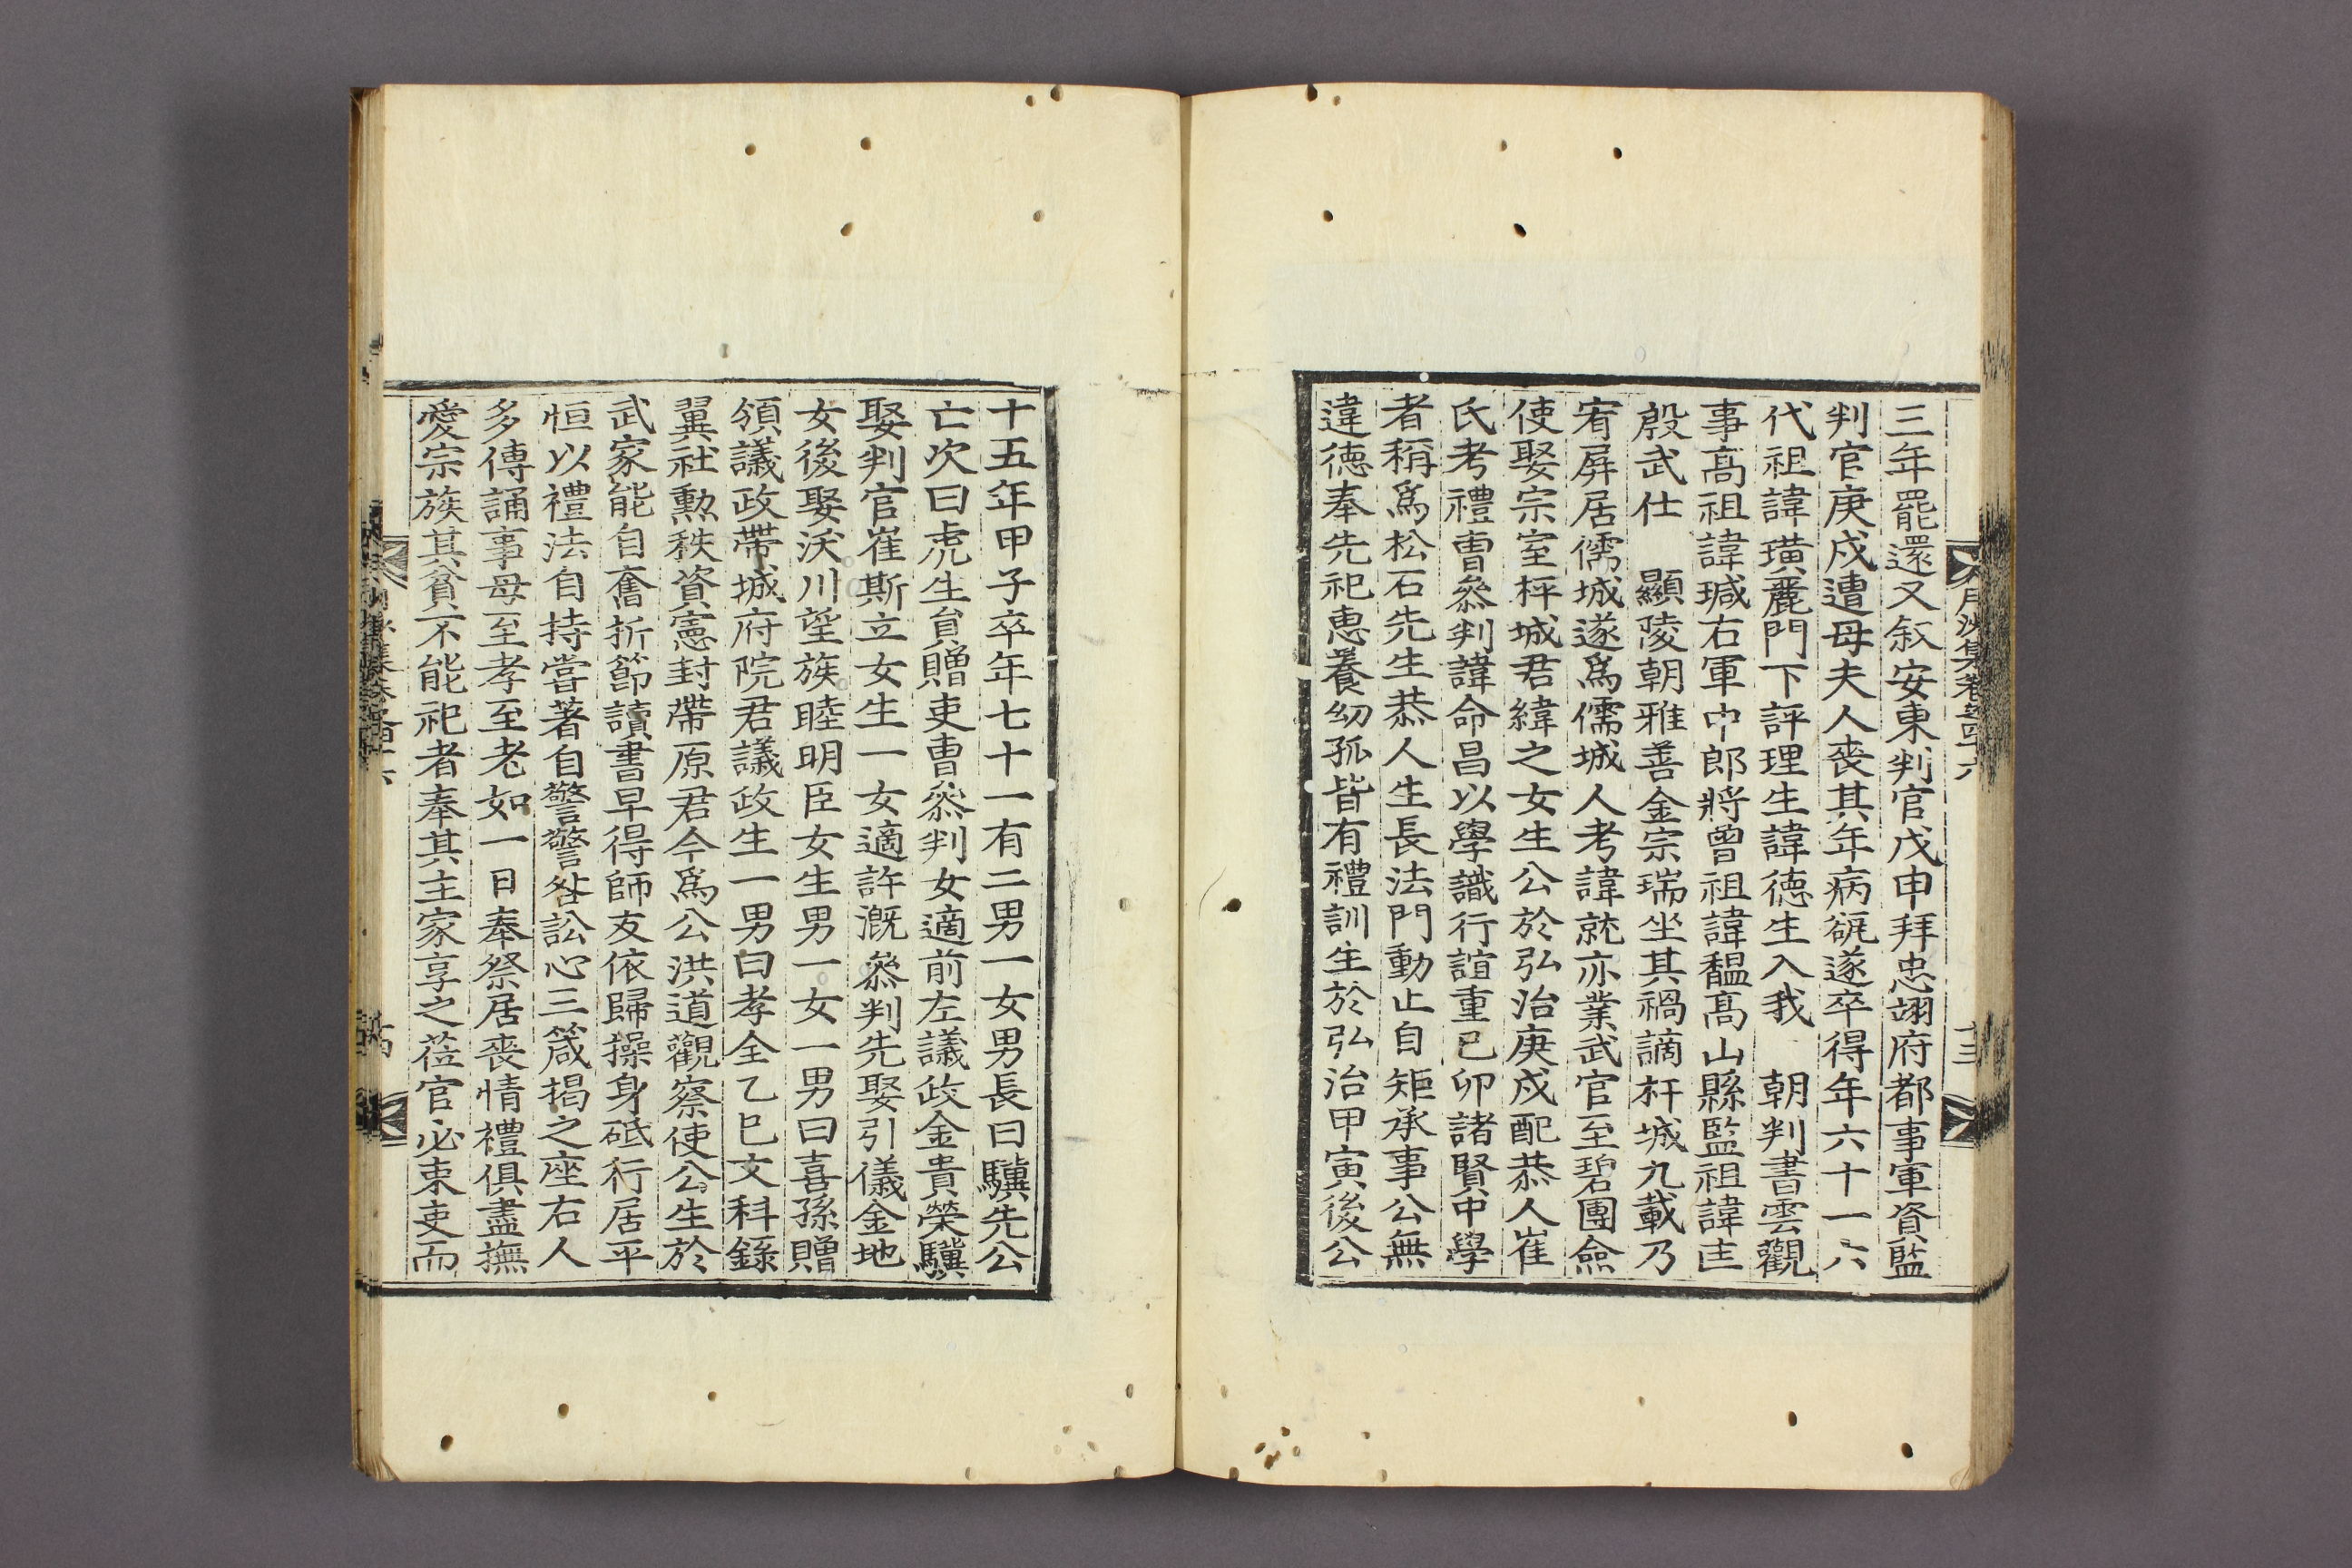 三年罷還又叙安東判官戊申拜忠翊府都事軍資監
判官庚戌遭母夫人喪其年病瓻遂卒得年六十一六
代祖諱璜麗門下評理生諱德生入我 朝判書雲觀
事高祖諱瑊右軍中郎將曾祖諱馧高山縣監祖諱
殷武仕 顯陵朝雅善金宗瑞坐其禍謫杆城九載乃
宥屛居儒城遂爲儒城人考諱就亦業武官至碧團僉
使娶宗室枰城君緯之女生公於弘治庚戌配恭人崔
氏考禮曺叅判諱命昌以學識行誼重己卯諸賢中學
者稱爲松石先生恭人生長法門動止自矩承事公無
違德奉先祀惠養幼孤皆有禮訓生於弘治甲寅後公
月沙集卷之四十六
十三
十五年甲子卒年七十一有二男一女男長曰驥先公
亡次曰虎生貟贈吏曺叅判女適前左議政金貴榮驥
娶判官崔斯立女生一女適許漑叅判先娶引儀金地
女後娶沃川望族睦明臣女生男一女一男曰喜孫贈
領議政帶城府院君議政生一男曰孝全乙巳文科錄
翼社勳秩資憲封帶原君今爲公洪道觀察使公生於
武家能自奮折節讀書早得師友依歸操身砥行居平
恒以禮法自持嘗著自警警咎訟心三箴揭之座右人
多傳誦事母至孝至老如一日奉祭居喪情禮俱盡撫
愛宗族其貧不能祀者奉其主家享之莅官必束吏而